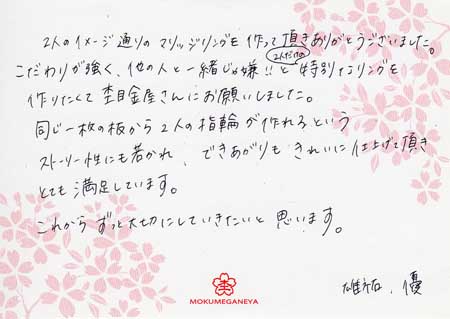 2人のイメージ通りのマリッジリングを作って頂きありがとうございました。
こだわりが強く、他の人と一緒じゃ嫌!!と2人だけの特別なリングを
作りたくて杢目金屋さんにお願いしました。
同じ一枚の板から2人の指輪が作れるという
ストーリー性にも惹かれ、できあがりもきれいに仕上げて頂き
とても満足しています。
これからずっと大切にしていきたいと思います。
雄祐、優
MOKUMEGANEYA